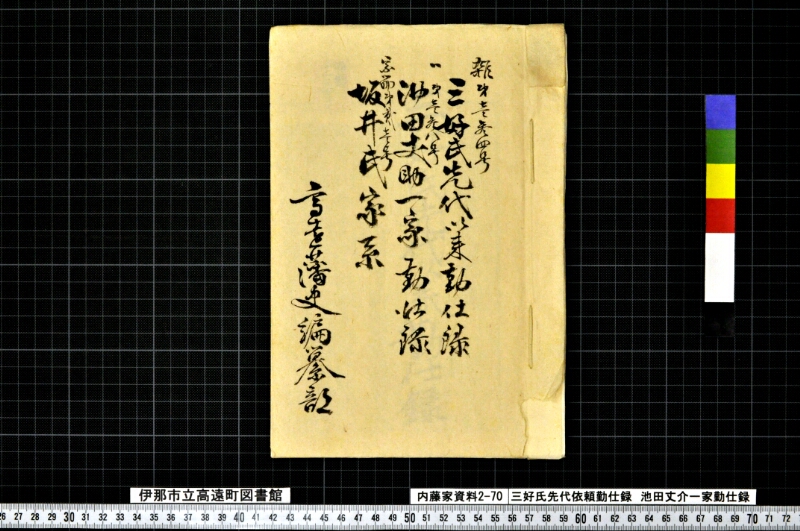 雑第壱参四号
三好氏先代以来勤仕録
〃第壱九八号
池田丈助一家勤仕録
坂井氏家系
高遠藩史編纂部
伊那市立高遠町図書館
内藤家資料2-70
三好氏先代依頼勤仕録 池田丈介一家勤仕録
26 27 28 29 30 31 32 33 34 35 36 37 38 39 40 41 42 43 44 45 46 47 48 49 50 51 52 53 54 55 56 57 58 59 60 61 62 63 64 65 66 67 68 69 70 71 72